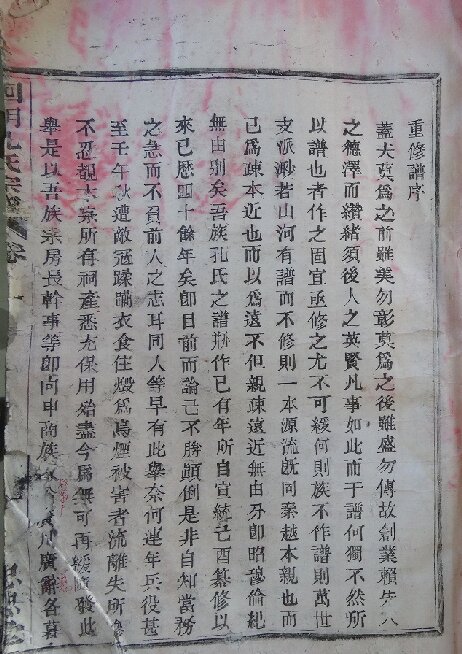 重修譜序
蓋夫莫爲之前雖美勿彰莫爲之後雖盛勿傳故創業賴先人
之德澤而纘緒須後人之英賢凡事如此而于譜何獨不然所
以譜也者作之固宜亟修之尤不可緩何則族不作譜則萬世
支派渺若山河有譜而不修則一本源流旣同秦越本親也而
已爲疎本近也而以爲遠不但親疎遠近無由分卽昭穆倫紀
無由别矣吾族孔氏之譜剏作已有年所自宣統己酉纂修以
來已歷四十餘年矣卽目前而論已不勝顛倒是非自知當務
之急而不負前人之志耳同人等早有此舉奈何連年兵役甚
至壬午秋遭敵冦蹂躪衣食住燬爲烏煙被害者流離失所
不忍覩本宗所有祠產悉充保用殆盡今爲無可再緩發此
舉是以吾族宗房長幹事等卽向申商族廣辭各募
孔氏宗譜 卷